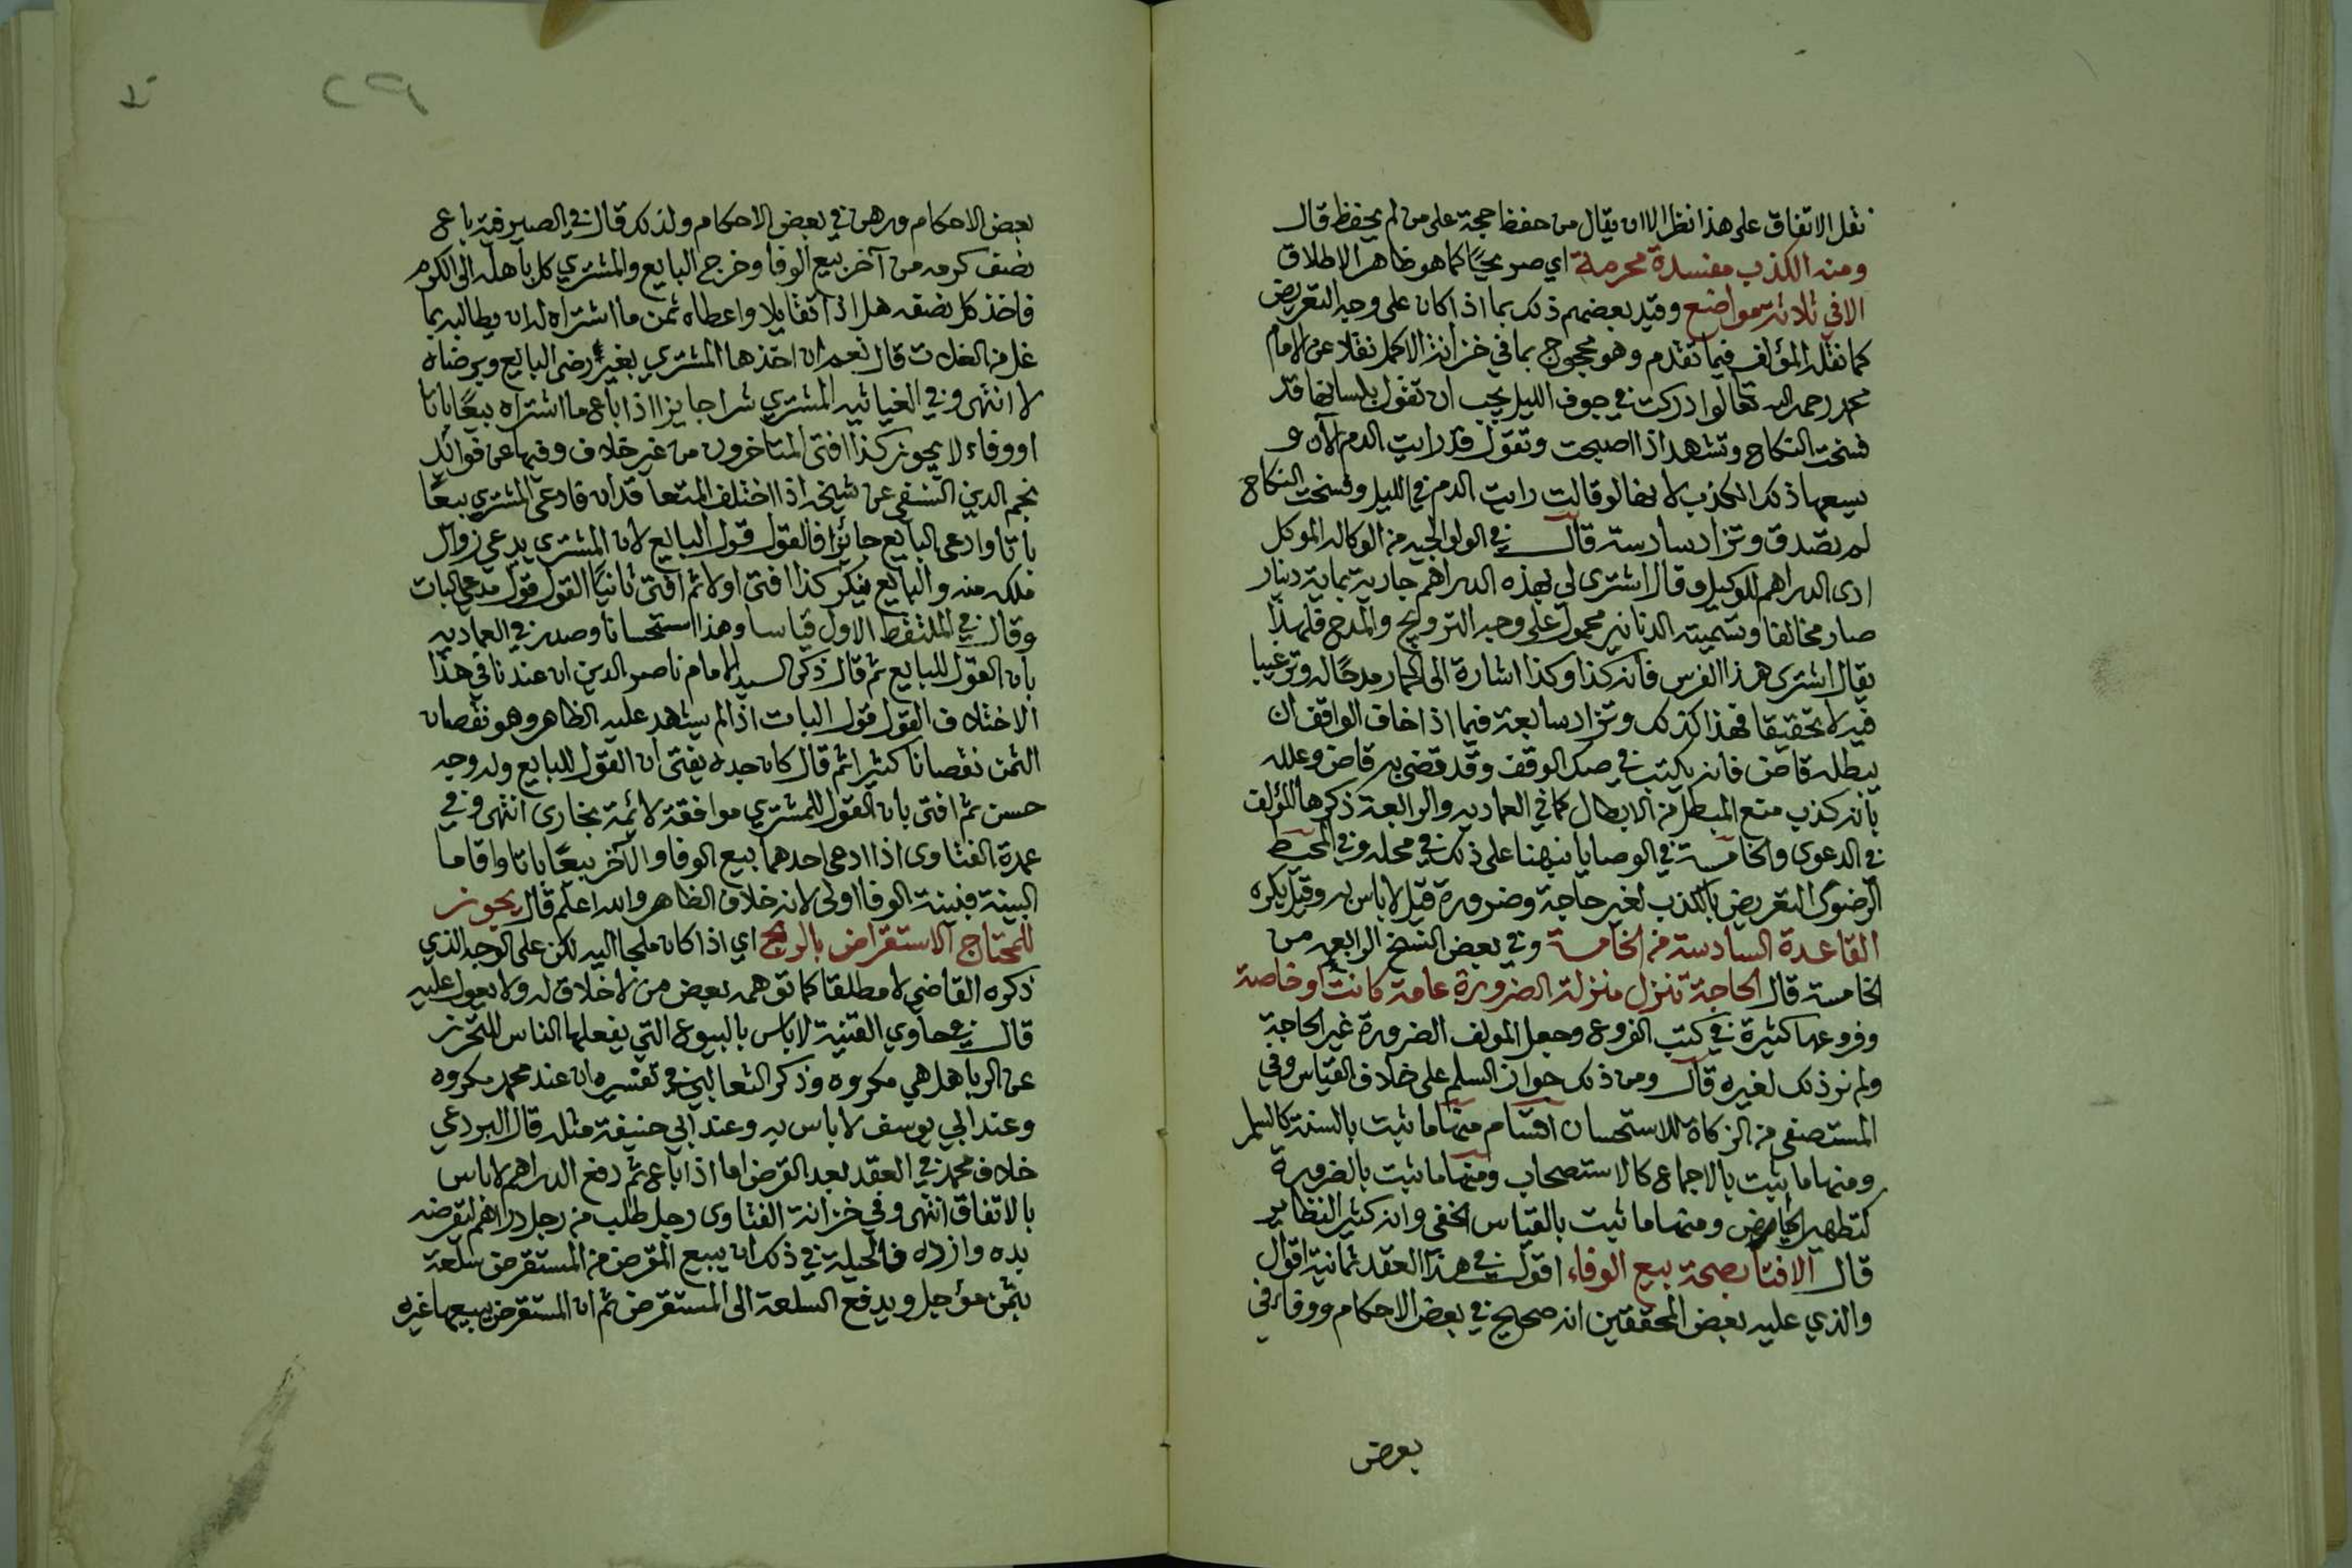 نقل الاتفاق على هذا نظر الا ان يقال من حفظ حجة على من لم يحفظ قال
ومنه الكذب مفسدة محرمة اي صريحًا كما هو ظاهر الاطلاق
الا في ثلاثة مواضع وقيد بعضهم ذلك بما اذا كان على وجه التعريض
كما نقله المؤلف فيما تقدم وهو محجوج بما في خزانة الاكمل نقلا عن الامام
محمد رحمه الله تعالى لو ادركت في جوف الليل يجب ان تقول بلسانها قد
فسخت النكاح وتشهد اذا اصبحت وتقول قد رايت الدم الآن و
يسعها ذلك الكذب لانها لو قالت رايت الدم في الليل وفسخت النكاح
لم تصدق وتزاد سادسة قال في الولوالجية من الوكالة الموكل
ادى الدراهم للوكيل وقال اشترى لي بهذه الدراهم جارية بماية دينار
صار مخالفا وتسمية الدنانير محمول على وجه الترويج والمدح فلهذا
يقال اشترى هذا الفرس فانه كذا وكذا اشارة الى الحمار مدحًا له وترغيبا
فيه لا تحقيقا فهذا كذلك وتزاد سابعة فيما اذا خاف الواقف ان
يبطله قاض فانه يكتب في صك الوقف وقد قضى به قاض وعلله
بانه كذب منع المبطل من الابطال كما في العمادية والرابعة ذكرها المؤلف
في الدعوى والخامسة في الوصايا نبهنا على ذلك في محله وفي المحيط
الرضوى التعريض بالكذب لغير حاجة وضرورة قيل لا باس به وقيل يكره
القاعدة السادسة من الخامسة وفي بعض النسخ الرابعه من
الخامسة قال الحاجة تنزل منزلة الضرورة عامة كانت او خاصة
وفروعها كثيرة في كتب الفروع وجعل المولف الضرورة غير الحاجة
ولم نر ذلك لغيره قال ومن ذلك جواز السلم على خلاف القياس وفي
المستصفى من الزكاة للاستحسان اقسام منها ما ثبت بالسنة كالسلم
ومنها ما يثبت بالاجماع كالاستصحاب ومنها ما ثبت بالضرورة
كتطهير الحياض ومنها ما ثبت بالقياس الخفى وانه كثير النظاير
قال الافتا بصحة بيع الوفاء اقول في هذا العقد ثمانية اقوال
والذي عليه بعض المحققين انه صحيح في بعض الاحكام ووفاء في
بعض
بعض الاحكام ورهن في بعض الاحكام ولذلك قال في الصيرفية باع
نصف كرمه من آخر بيع الوفا وخرج البايع والمشتري كل باهله الى الكرم
فاخذ كل نصفه هل اذا تقايلا واعطاه ثمن ما اشتراه له ان يطالبه بما
غل من الغلات قال نعم ان اخذها المشتري بغير رضى البايع وبرضاه
لا انتهى وفي الغياثيه المشتري شرا جايزا اذا باع ما اشتراه بيعًا باتا
او وفاء لا يجوز كذا افتى المتاخرون من غير خلاف وفيها عن فوائد
نجم الدين النسفي عن شيخه اذا اختلف المتعاقدان فادعى المشتري بيعًا
باتا وادعى البايع جائزا فالقول قول البايع لان المشتري يدعي زوال
ملكه منه والبايع ينكر كذا افتى اولا ثم افتى ثانيًا القول قول مدعي البات
وقال في الملتقط الاول قياسا وهذا استحسانا وصدر في العماديه
بان القول للبايع ثم قال ذكر السيد الامام ناصر الدين ان عندنا في هذا
الاختلاف القول قول البات اذا لم يشهد عليه الظاهر وهو نقصان
الثمن نقصانا كثيرا ثم قال كان جده يفتى ان القول للبايع وله وجه
حسن ثم افتى بان القول للمشتري موافقة لائمة بخارى انتهى وفي
عمدة الفتاوى اذا ادعى احدهما بيع الوفا والآخر بيعًا باتا واقاما
البينة فبينة الوفا اولى لانه خلاف الظاهر والله اعلم قال يجوز
للمحتاج الاستقراض بالربح اي اذا كان ملجا اليه لكن على الوجه الذي
ذكره القاضي لا مطلقا كما توهمه بعض من لا خلاق له ولا يعول عليه
قال في حاوي القنية لا باس بالبيوع التي يفعلها الناس للتحرز
عن الربا هل هي مكروه وذكر الثعالبي في تفسيره ان عند محمد مكروه
وعند ابي يوسف لا باس به وعند ابي حنيفة مثله قال البردعي
خلاف محمد في العقد بعد القرض اما اذا باع ثم دفع الدراهم لا باس
بالاتفاق انتهى وفي خزانة الفتاوى رجل طلب من رجل دراهم ليقرضه
بده وازده فالحيلة في ذلك ان يبيع المقرض من المستقرض سلعة
بثمن مؤجل ويدفع السلعة الى المستقرض ثم ان المستقرض يبيعها غيره